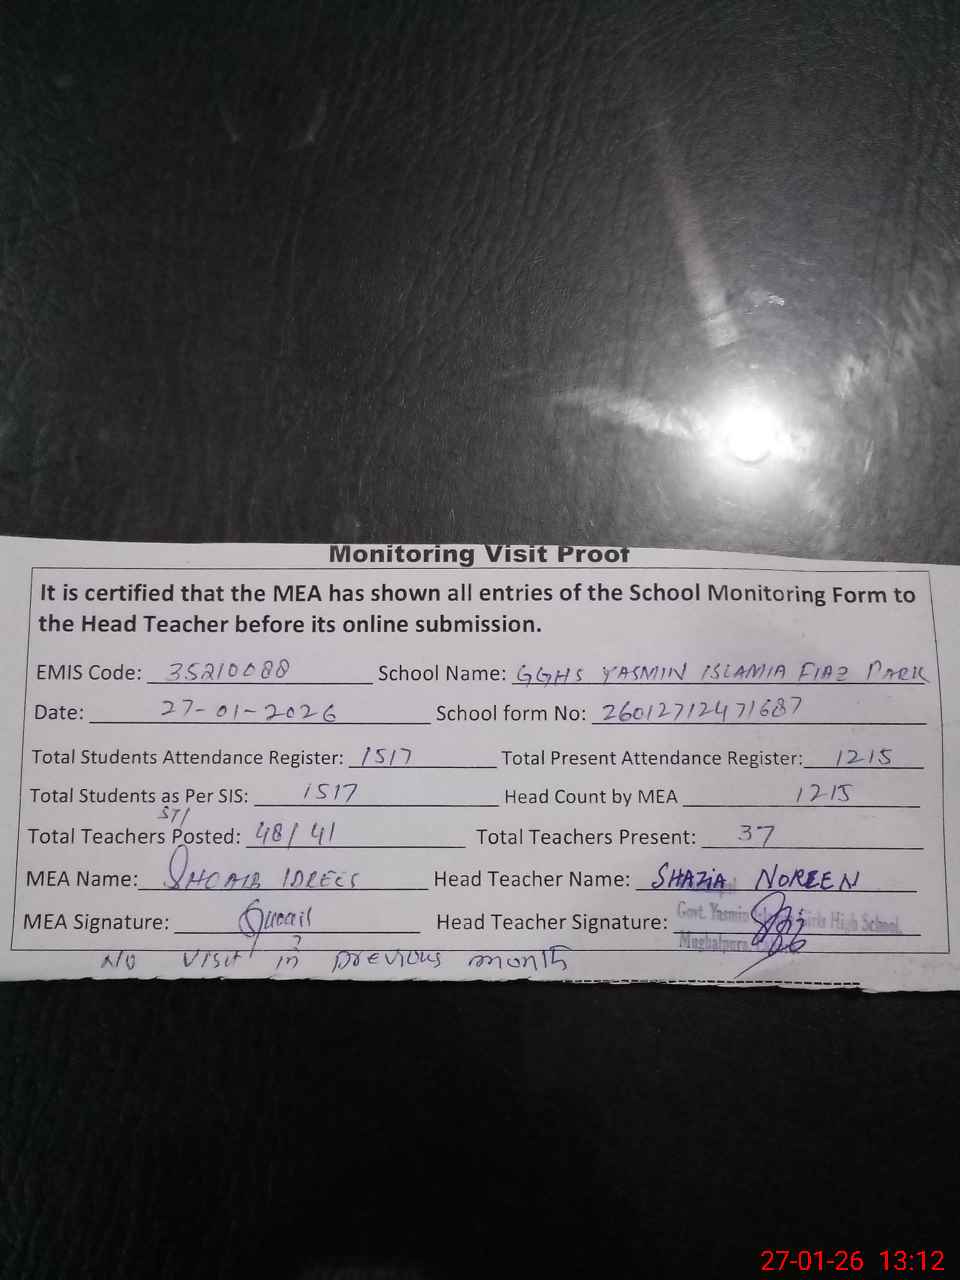 Monitoring Visit Proof
It is certified that the MEA has shown all entries of the School Monitoring Form to
the Head Teacher before its online submission.
EMIS Code: 35210088 School Name: GGHS YASMIN ISLAMIA FIAZ PARK
Date: 27-01-2026 School form No: 26012712471687
Total Students Attendance Register: 1517 Total Present Attendance Register: 1215
Total Students as Per SIS: 1517 Head Count by MEA 1215
STI
Total Teachers Posted: 48/41 Total Teachers Present: 37
MEA Name: SHOAIB IDREES Head Teacher Name: SHAZIA NOREEN
MEA Signature: Head Teacher Signature:
Govt. Yasmin Girls High School,
Mughalpura,
No visit in previous month
27-01-26 13:12